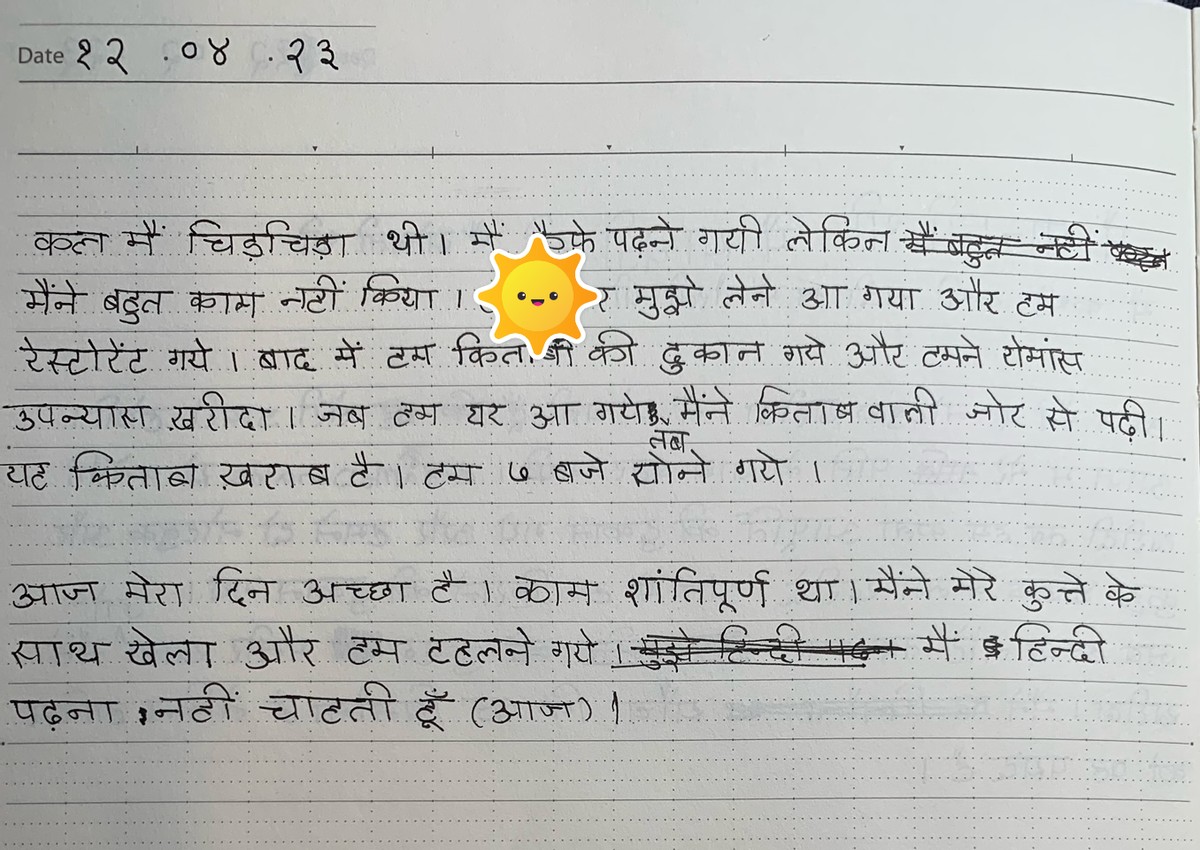 Date १२ .०४ .२३
कल मैं चिड़चिड़ा थी। मैं कैफे पढ़ने गयी लेकिन मैं बहुत नहीं
मैंने बहुत काम नहीं किया । मुझे लेने आ गया और हम
रेस्टोरेंट गये । बाद में हम की दुकान गये और हमने रोमांस
उपन्यास ख़रीदा । जब हम घर आ गये मैंने किताब वाली जोर से पढ़ी।
तब
यह किताब ख़राब है । हम ७ बजे सोने गये ।
आज मेरा दिन अच्छा है । काम शांतिपूर्ण था । मैंने मेरे कुत्ते के
साथ खेला और हम टहलने गये । मुझे हिन्दी मैं हिन्दी
पढ़ना नहीं चाहती हूँ (आज) ।